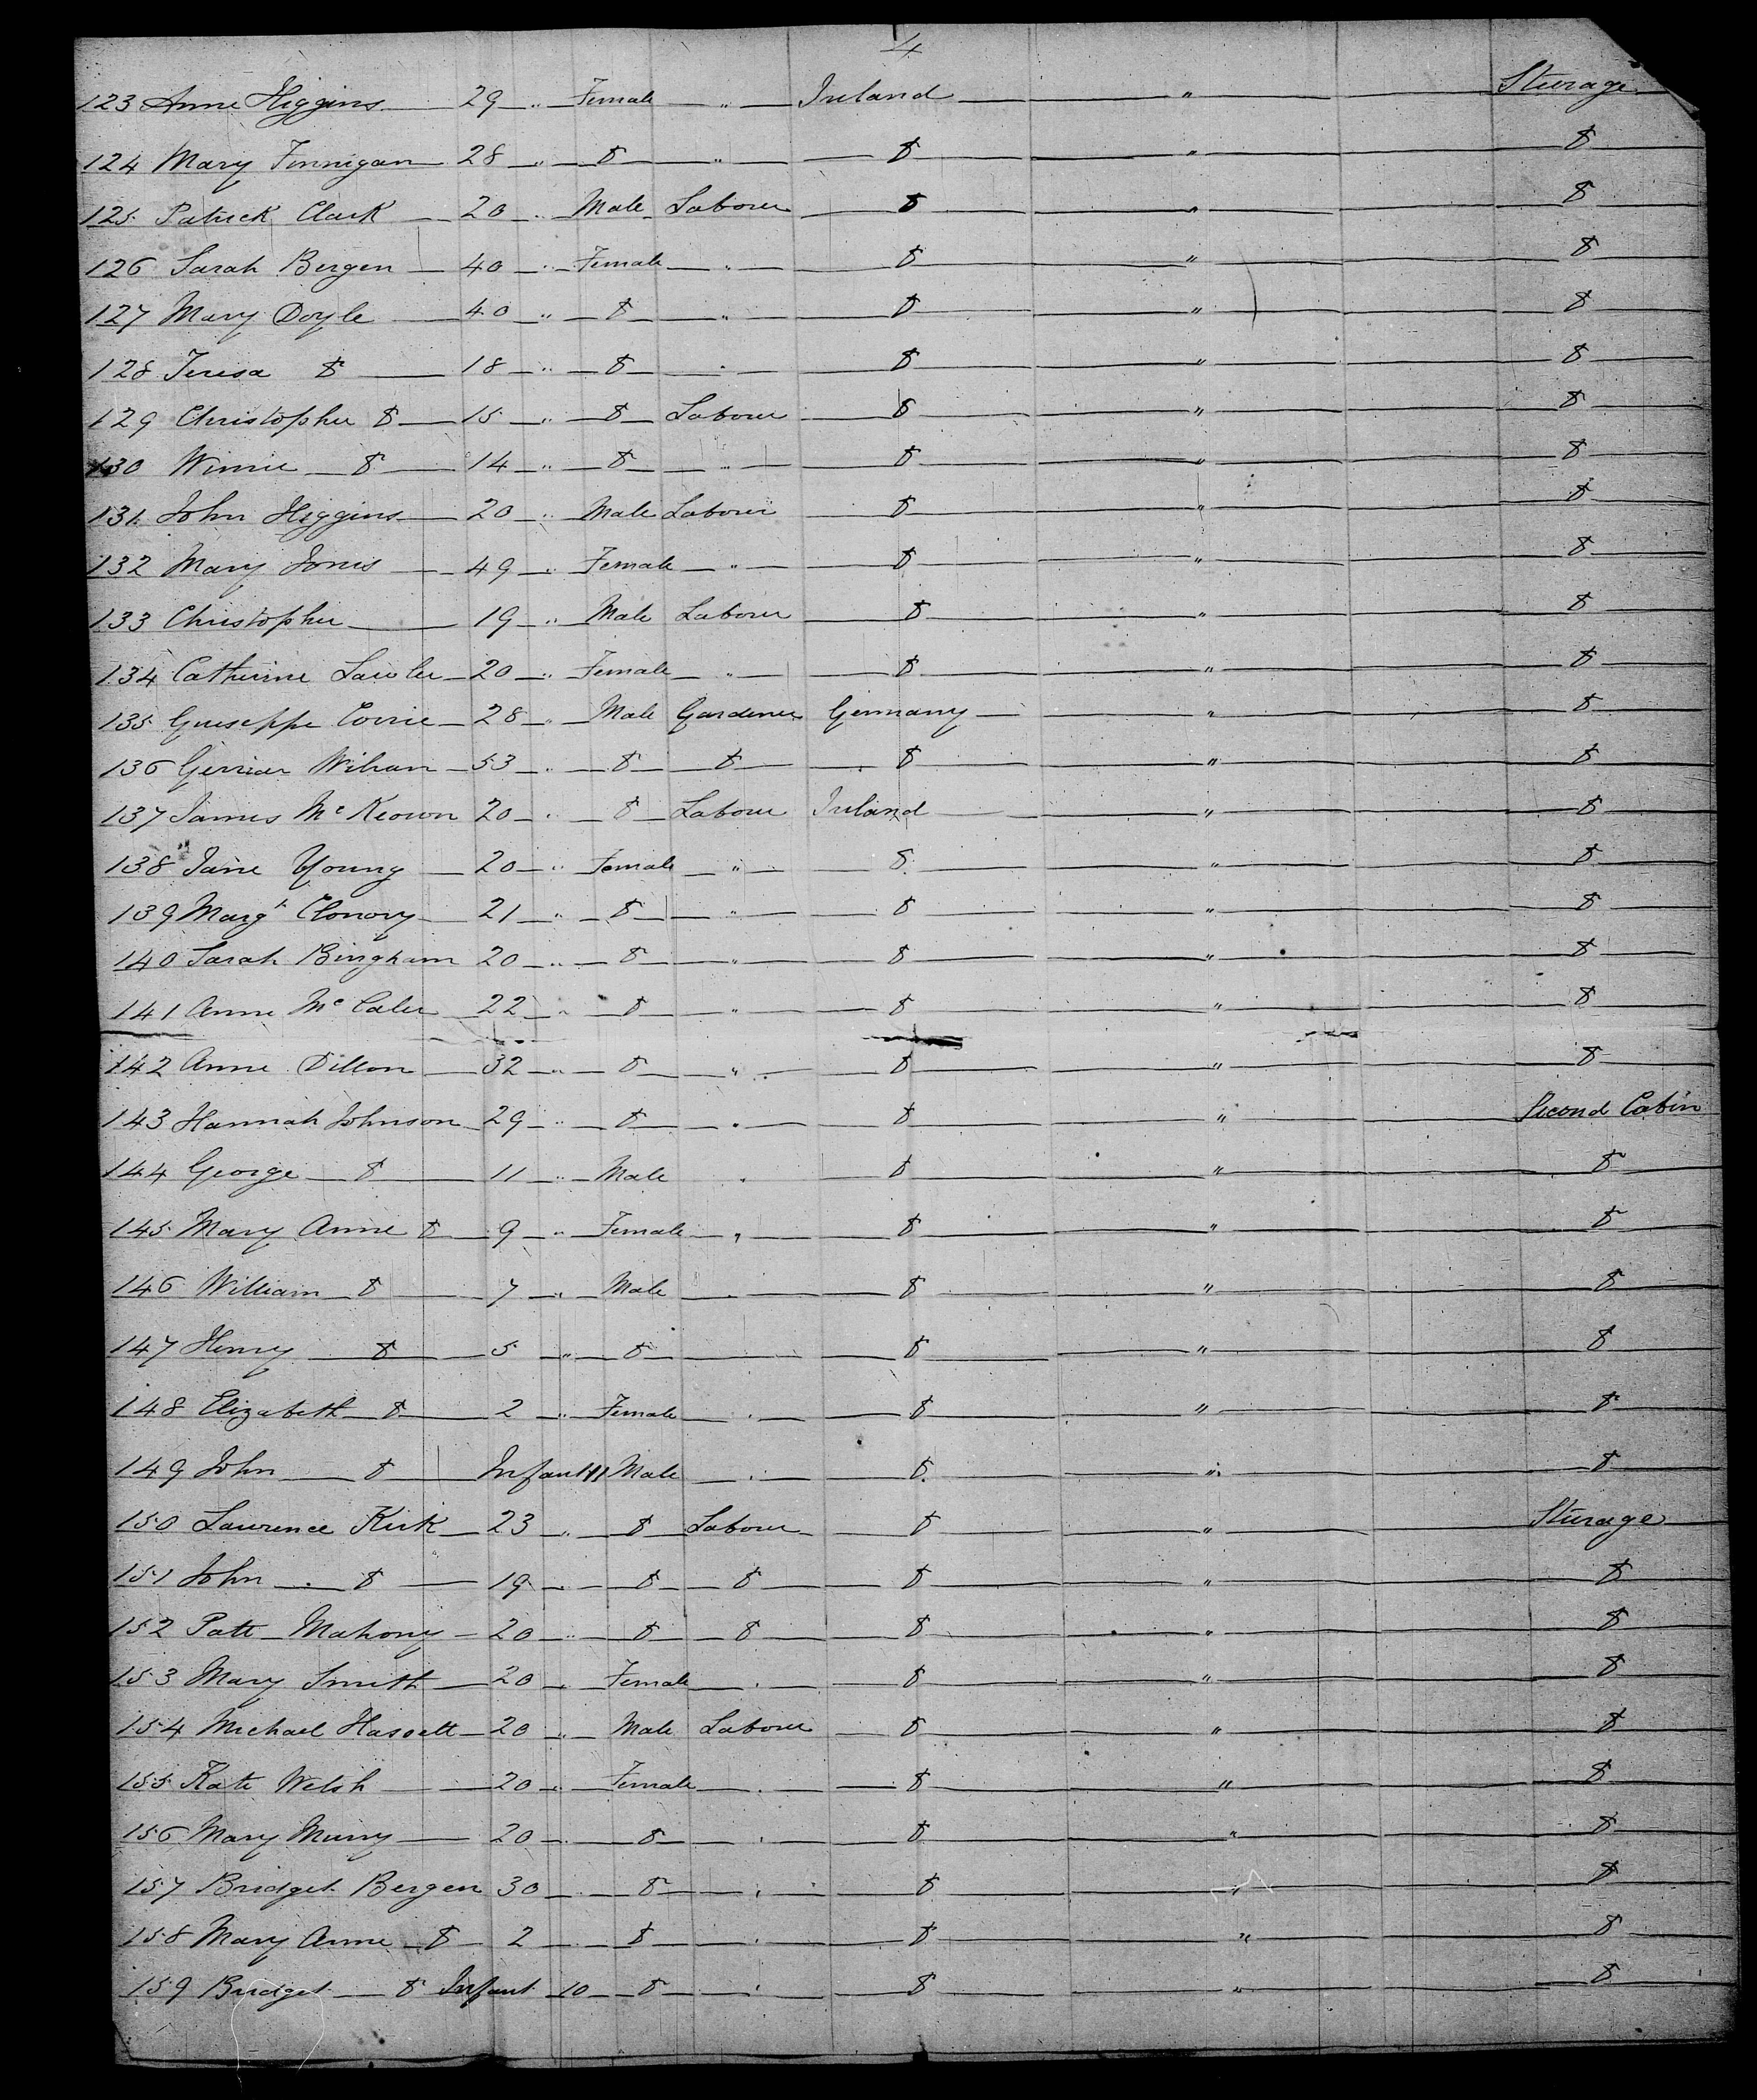 4
123 Anne Higgins 29 " Female " Ireland " Steerage
124 Mary Finnigan 28 " Do " Do " Do
125 Patrick Clark 20 " Male Labourer Do " Do
126 Sarah Bergen 40 " Female " Do " Do
127 Mary Doyle 40 " Do " Do " Do
128 Teresa Do 18 " Do " Do " Do
129 Christopher Do 15 " Do Labourer Do " Do
130 Winnie Do 14 " Do " Do " Do
131 John Higgins 20 " Male Labourer Do " Do
132 Mary Jones 49 " Female " Do " Do
133 Christopher 19 " Male Labourer Do " Do
134 Catherine Lawler 20 " Female " Do " Do
135 Guiseppe 28 " Male Gardener Germany " Do
136 53 " Do Do Do " Do
137 James McKeown 20 " Do Labourer Ireland " Do
138 Jane Young 20 " Female " Do " Do
139 Margt Clonory 21 " Do " Do " Do
140 Sarah Bingham 20 " Do " Do " Do
141 Anne McCaler 22 " Do " Do " Do
142 Anne Dillon 32 " Do " Do " Do
143 Hannah Johnson 29 " Do " Do " Second Cabin
144 George Do 11 " Male " Do " Do
145 Mary Anne Do 9 " Female " Do " Do
146 William Do 7 " Male " Do " Do
147 Henry Do 5 " Do Do " Do
148 Elizabeth Do 2 " Female " Do " Do
149 John Do Infant 11 Male " Do " Do
150 Lawrence Kirk 23 " Do Labourer Do " Steerage
151 John Do 19 " Do Do Do " Do
152 Patt Mahony 20 " Do Do Do " Do
153 Mary Smith 20 " Female " Do " Do
154 Michael Hassett 20 " Male Labourer Do " Do
155 Kate Welsh 20 " Female " Do " Do
156 Mary Murry 20 " Do " Do " Do
157 Bridget Bergen 30 " Do " Do " Do
158 Mary Anne Do 2 " Do " Do " Do
159 Bridget Do Infant 10 Do " Do " Do